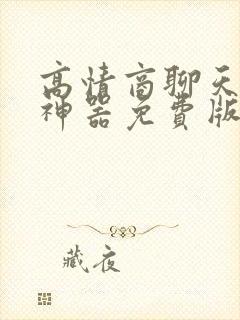 高情商聊天
神器免费版
藏夜